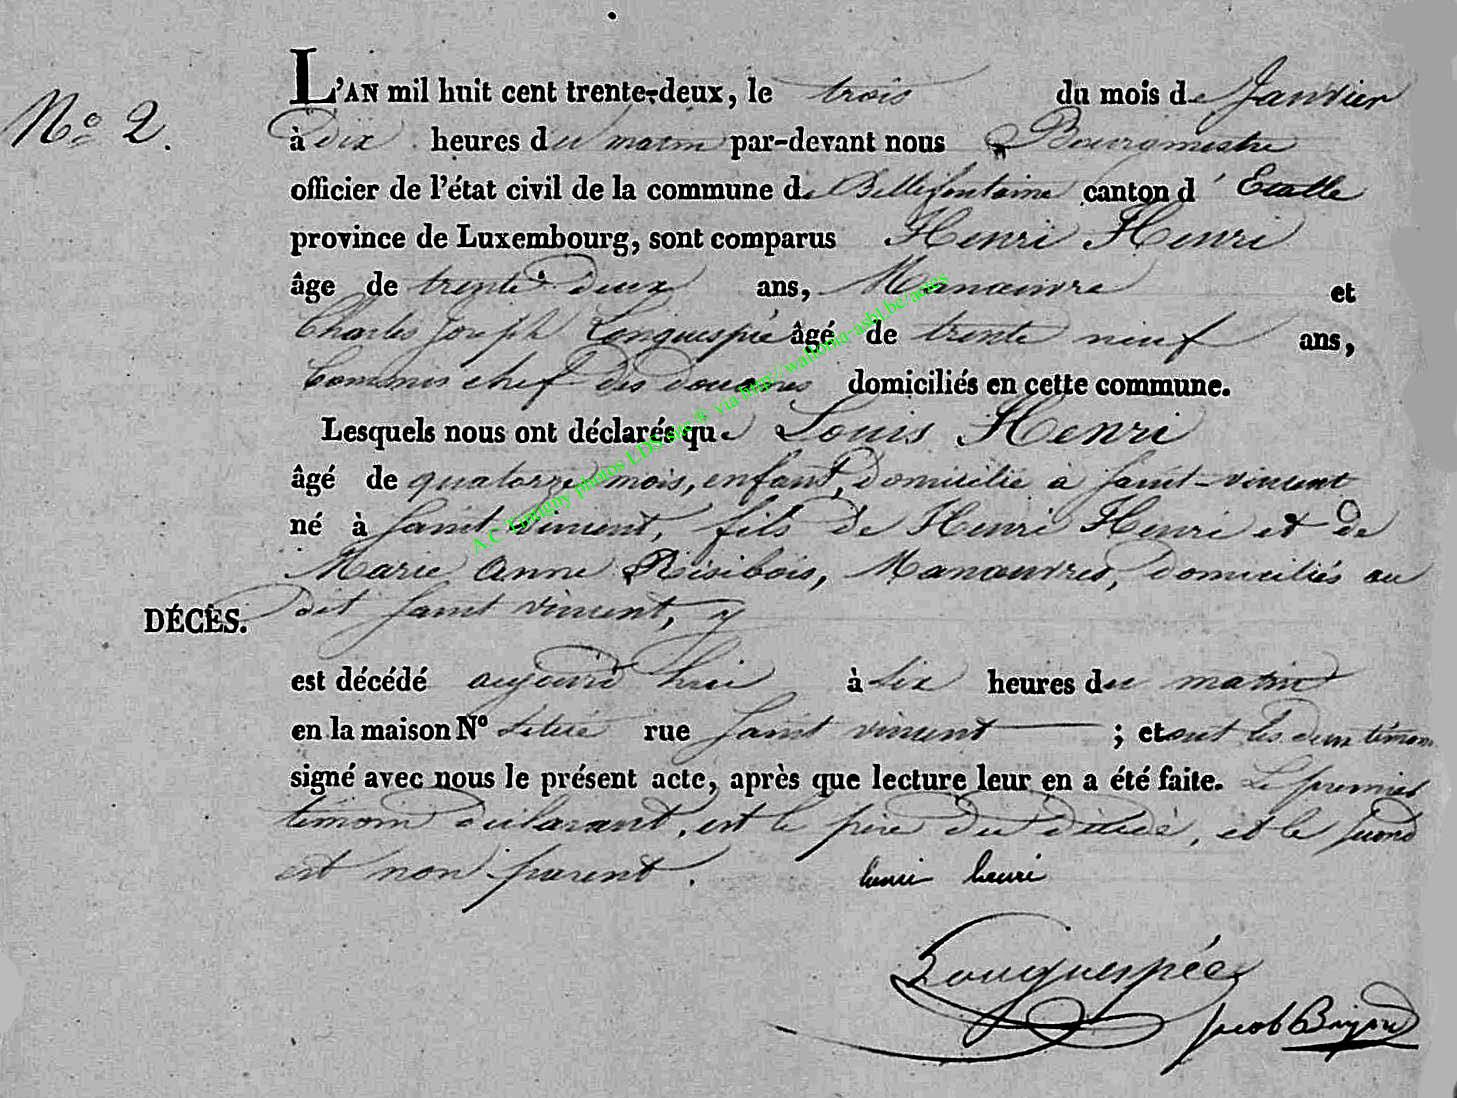 L'AN mil huit cent trente-deux, le trois du mois de Janvier
N° 2. à dix heures du matin par-devant nous Bourgmestre
officier de l'état civil de la commune de Bellefontaine canton d'Etalle
province de Luxembourg, sont comparus Henri Henri
âge de trente deux ans, Manœuvre et
Charles Joseph Longuespée âgé de trente neuf ans,
Commis chef des douanes domiciliés en cette commune.
Lesquels nous ont déclarés que Louis Henri
âgé de quatorze mois, enfant, domicilié à saint-vincent
né à saint vincent, fils de Henri Henri et de
Marie Anne Risibois, Manœuvres, domiciliés au
DÉCÈS. dit saint vincent,
est décédé aujourd'hui à six heures du matin
en la maison N° située rue saint vincent ; et ont les deux témoins
signé avec nous le présent acte, après que lecture leur en a été faite. Le premier
témoin déclarant, est le père du décédé, et le second
est non parent. henri henri
Longuespée
Jacob
A.C. Tintigny photos LDS site ® via http://wallonia-asbl.be/actes